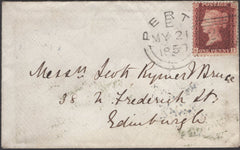 PERTH
MY 21
185
ONE PENNY
Messrs Scott Rymer & Bruce
38 N Frederick St.
Edinburgh